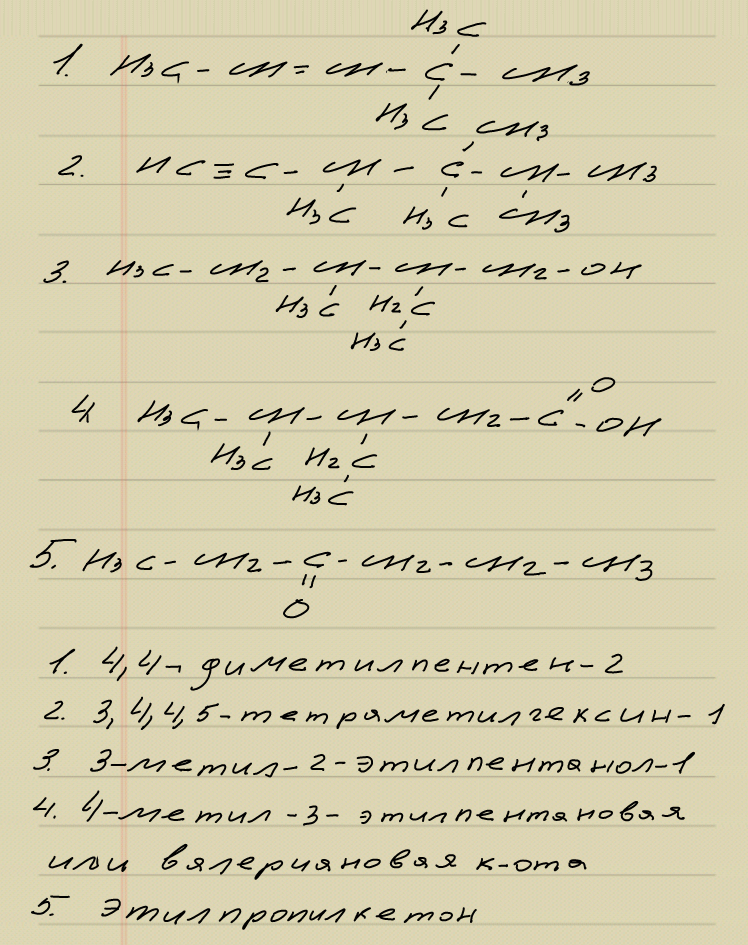 H₃C
1. H₃C - CH = CH - C - CH₃
H₃C CH₃
2. HC ≡ C - CH - C - CH - CH₃
H₃C H₃C CH₃
3. H₃C - CH₂ - CH - CH - CH₂ - OH
H₃C H₂C
H₃C
O
4. H₃C - CH - CH - CH₂ - C - OH
H₃C H₂C
H₃C
5. H₃C - CH₂ - C - CH₂ - CH₂ - CH₃
O
1. 4,4-диметилпентен-2
2. 3,4,4,5-тетраметилгексин-1
3. 3-метил-2-этилпентанол-1
4. 4-метил-3-этилпентановая
или валериановая к-ота
5. Этилпропилкетон